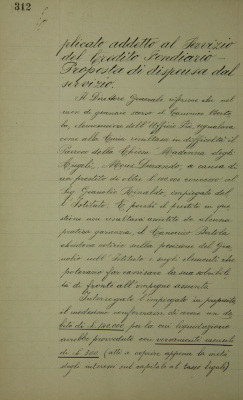 312
plicato addetto al Servizio
del Credito Fondiario -
Proposta di dispensa dal
servizio.
Il Direttore Generale riferisce che nel
mese di gennaio scorso il Canonico
elemosiniere dell' Ufficio Pio, segnalava
come alla Cuna risultava in difficoltà il
Parroco della Chiesa Madonna degli
Angeli, Mons. a causa di
un prestito di oltre L. concesso al
Sig. Rinaldo, impiegato del
l'Istituto. E poiché il prestito in que
stione non risultava assistito da alcuna
pratica garanzia, il Canonico
chiedeva notizie sulla posizione del
nello all' Istituto e sugli elementi che
potevano far ravvisare la sua solvibilità
di fronte all' impegno assunto.
Interrogato l'impiegato in proposito
il medesimo confermava di avere un de
bito di L. 140.000 per la cui liquidazione
avrebbe provveduto con versamento mensile
di L. 300 (atto a coprire appena la metà
degli interessi sul capitale al tasso legale)